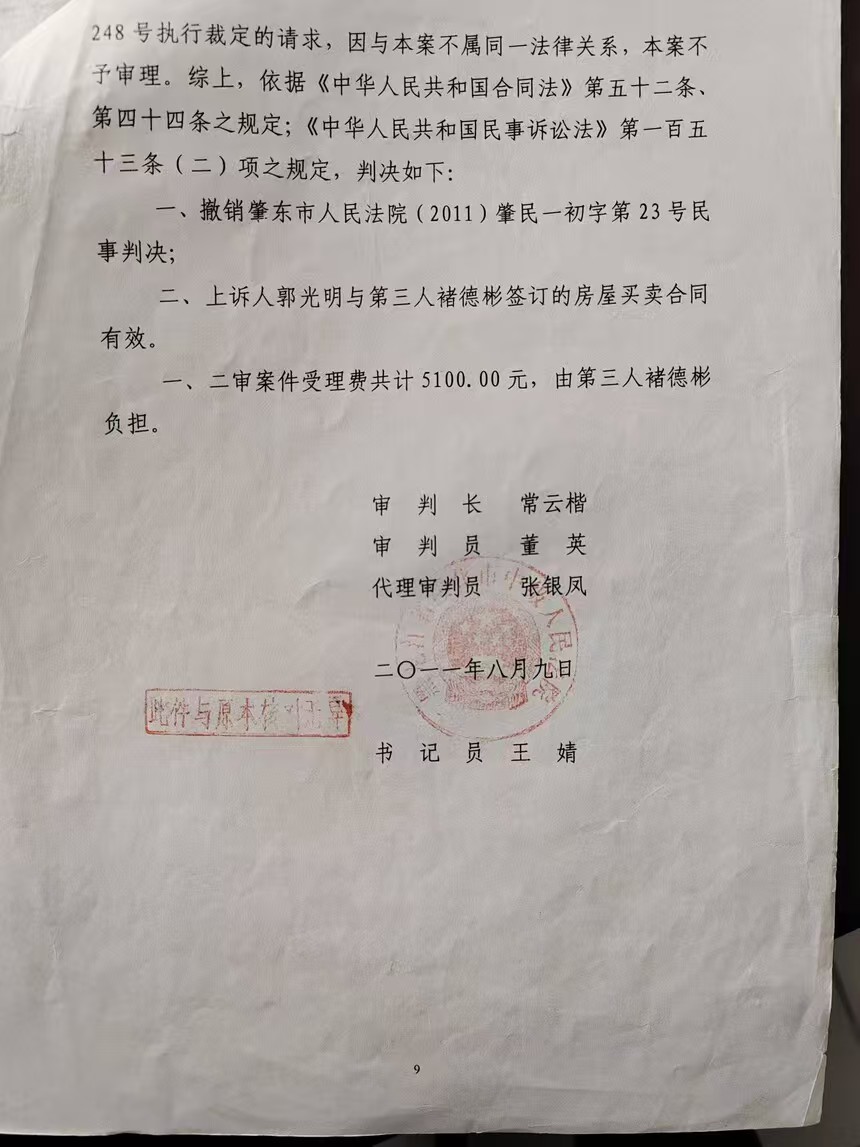 248 号执行裁定的请求，因与本案不属同一法律关系，本案不
予审理。综上，依据《中华人民共和国合同法》第五十二条、
第四十四条之规定；《中华人民共和国民事诉讼法》第一百五
十三条（二）项之规定，判决如下：
一、撤销肇东市人民法院（2011）肇民一初字第 23 号民
事判决；
二、上诉人郭光明与第三人褚德彬签订的房屋买卖合同
有效。
一、二审案件受理费共计 5100.00 元，由第三人褚德彬
负担。
审 判 长 常云楷
审 判 员 董 英
代理审判员 张银凤
人民法院
二〇一一年八月九日
此件与原本核对无异
书 记 员 王 婧
9